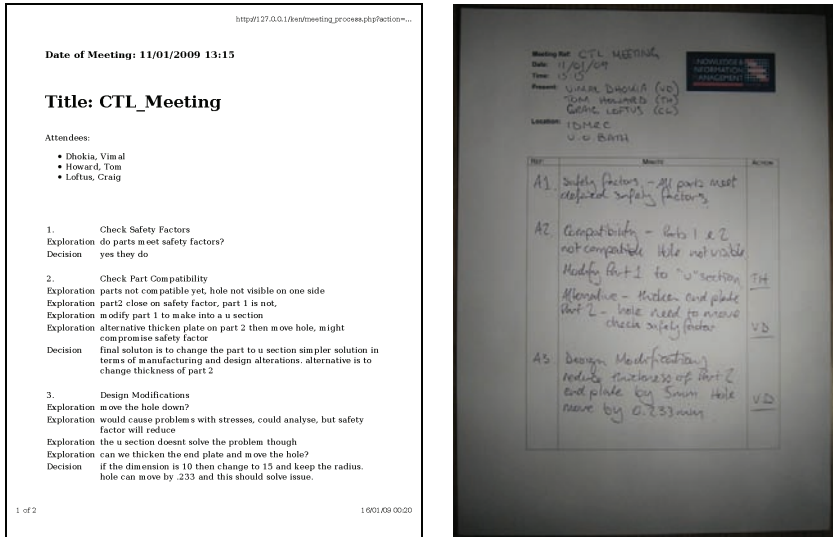 http://127.0.0.1/ken/meeting_process.php?action=...
Date of Meeting: 11/01/2009 13:15
Title: CTL_Meeting
Attendees:
Dhokia, Vimal
Howard, Tom
Loftus, Craig
1. Check Safety Factors
Exploration do parts meet safety factors?
Decision yes they do
2. Check Part Compatibility
Exploration parts not compatible yet, hole not visible on one side
Exploration part2 close on safety factor, part 1 is not,
Exploration modify part 1 to make into a u section
Exploration alternative thicken plate on part 2 then move hole, might
compromise safety factor
Decision final soluton is to change the part to u section simpler solution in
terms of manufacturing and design alterations. alternative is to
change thickness of part 2
3. Design Modifications
Exploration move the hole down?
Exploration would cause problems with stresses, could analyse, but safety
factor will reduce
Exploration the u section doesnt solve the problem though
Exploration can we thicken the end plate and move the hole?
Decision if the dimension is 10 then change to 15 and keep the radius.
hole can move by .233 and this should solve issue.
1 of 2
16/01/09 00:20
Meeting Ref: CTL MEETING
Date: 11/01/09
Time: 13:15
Present: VIMAL DHOKIA (VD)
TOM HOWARD (TH)
CRAIG LOFTUS (CL)
Location: IDMRC
U.O BATH
KNOWLEDGE &
INFORMATION
MANAGEMENT
Ref: Minute Action
A1. Safety factors - All parts meet
defined safety factors
A2. Compatibility - Parts 1 & 2
not compatible Hole not visible
Modify Part 1 to "u" section TH
Alternative - thicken end plate
Part 2 - hole need to move
check safety factor VD
A3. Design Modifications
reduce thickness of Part 2
end plate by 5mm Hole
move by 0.233mm VD